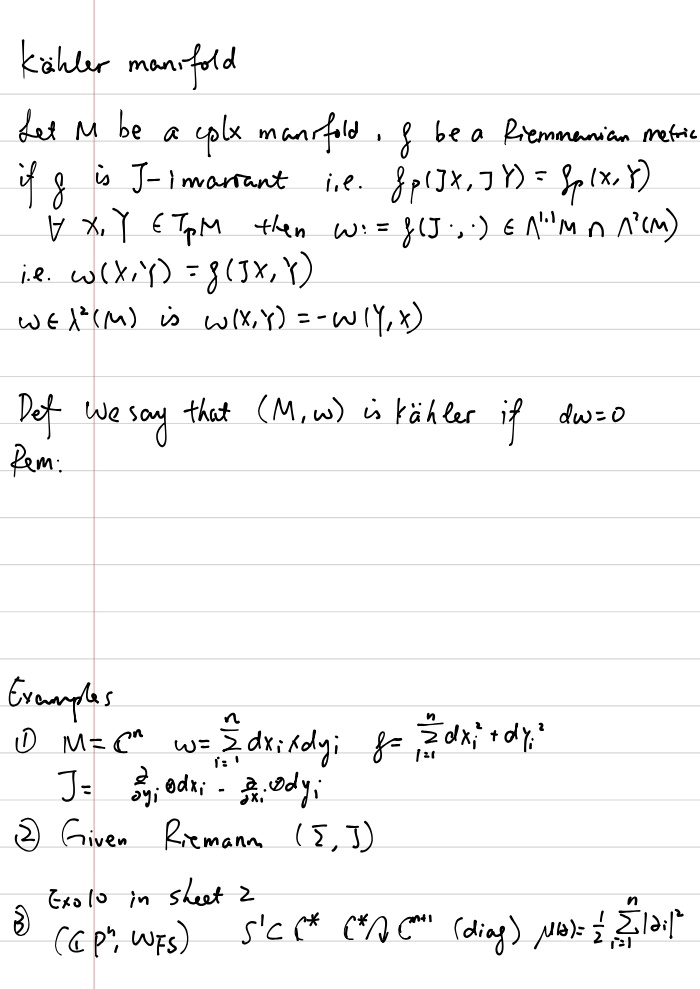 Kähler manifold
Let M be a cplx manifold, g be a Riemmanian metric
if g is J-invariant i.e. g_p(JX, JY) = g_p(X, Y)
∀ X, Y ∈ T_pM then ω := g(J·, ·) ∈ Λ^{1,1}M ∩ Λ²(M)
i.e. ω(X,Y) = g(JX, Y)
ω ∈ λ²(M) is ω(X,Y) = -ω(Y,X)
Def We say that (M, ω) is Kähler if dω=0
Rem:
Examples
① M = ℂⁿ ω = Σ_{i=1}^n dx_i ∧ dy_i g = Σ_{i=1}^n dx_i² + dy_i²
J = ∂/∂y_i ⊗ dx_i - ∂/∂x_i ⊗ dy_i
② Given Riemann (Σ, J)
Exo 10 in sheet 2
③ (ℂPⁿ, ω_FS) S¹ ⊂ ℂ* ℂ* ↷ ℂ^{n+1} (diag) μ(z) = ½ Σ_{i=1}^n |z_i|²